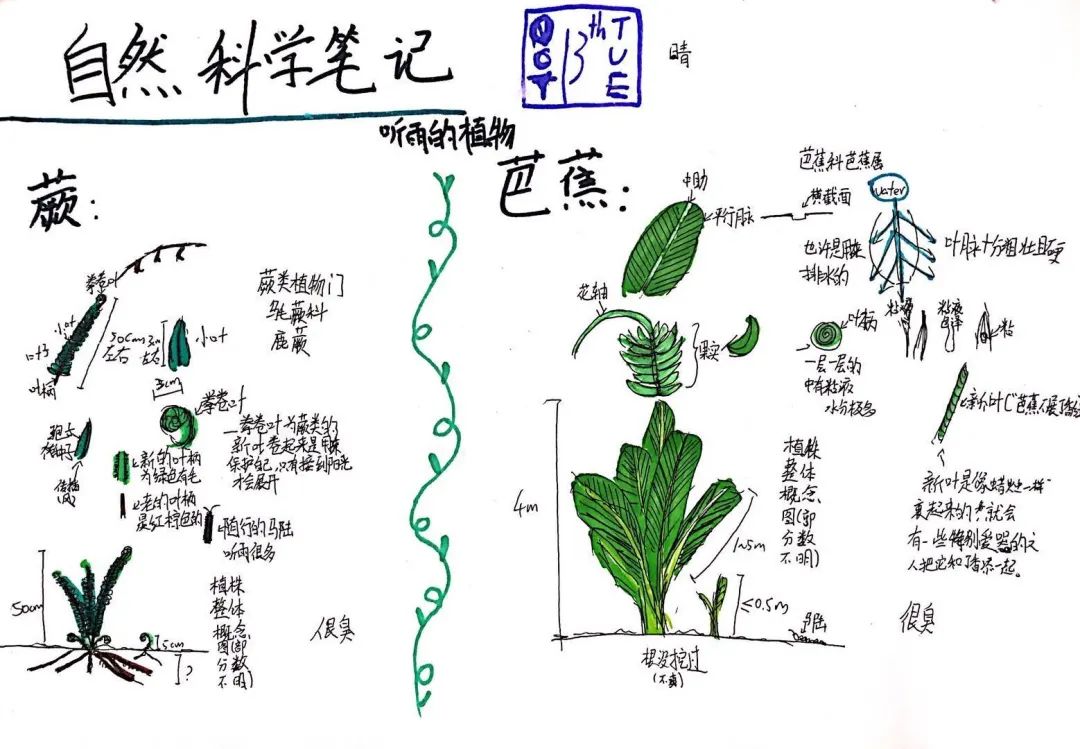 自然科学笔记
OCT 13th TUE
晴
听雨的植物
蕨:
拳卷叶
小叶
叶柄
50cm
左右
3cm
左右
小叶
3cm
蕨类植物门
凤尾蕨科
鹿蕨
拳卷叶
拳卷叶为蕨类的
新叶卷起来是用来
保护自己,只有接到阳光
才会展开
孢子
传播
风
新的叶柄
为绿色有毛
老的叶柄
是红棕色的
随行的马陆
听雨很多
50cm
5cm
?
植株
整体
概念
图(部
分数
不明)
很臭
芭蕉:
芭蕉科芭蕉属
中助
平行脉
横截面
也许是用来
排水的
water
叶脉十分粗壮且硬
花轴
果实
叶柄
一层一层的
中有粘液
水分极多
粘液
粘液
粘
新叶("芭蕉不展丁香结
新叶是像蜡烛一样
裹起来的,就会
有一些特别爱愁的文
人把它和丁香添一起。
4m
1~5m
≤0.5m
植株
整体
概念
图(部
分数
不明)
马陆
很臭
根没挖过
(不爽)